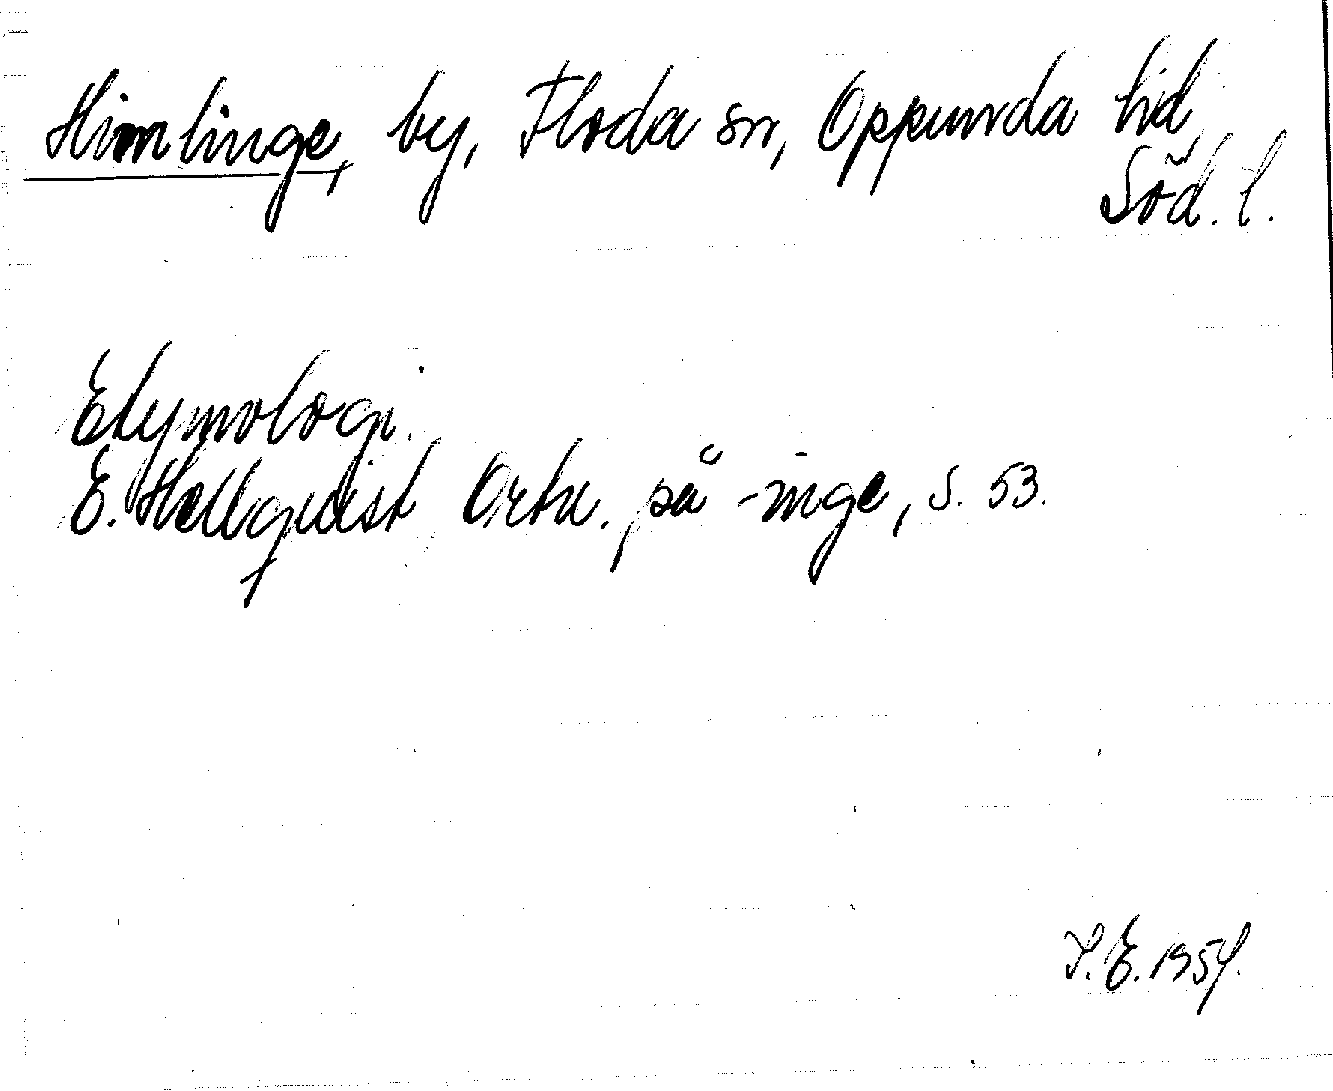 Himlinge, by, Floda sn, Oppunda hd,
Söd. l.
Etymologi.
E. Hellquist Ortn. på -inge, s. 53.
E. 195